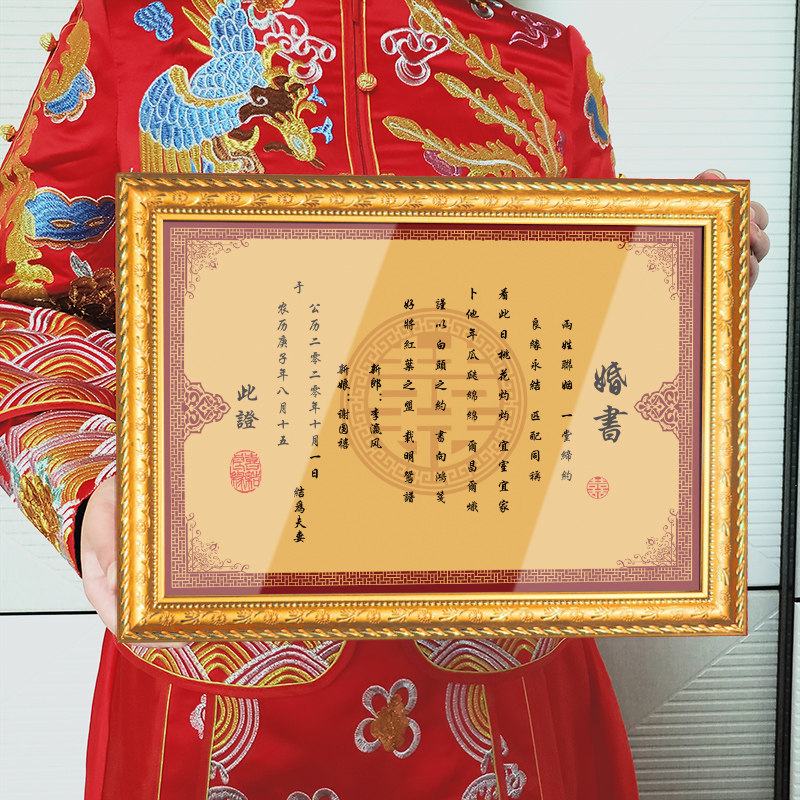 婚書
兩姓聯姻 一堂締約
良緣永結 匹配同稱
看此日桃花灼灼 宜室宜家
卜他年瓜瓞綿綿 爾昌爾熾
謹以白頭之約 書向鴻箋
好將紅葉之盟 載明鴛譜
新郎：李瀛风
新娘：谢国禧
于
公历二零二零年十月一日 結爲夫妻
农历庚子年八月十五
此證